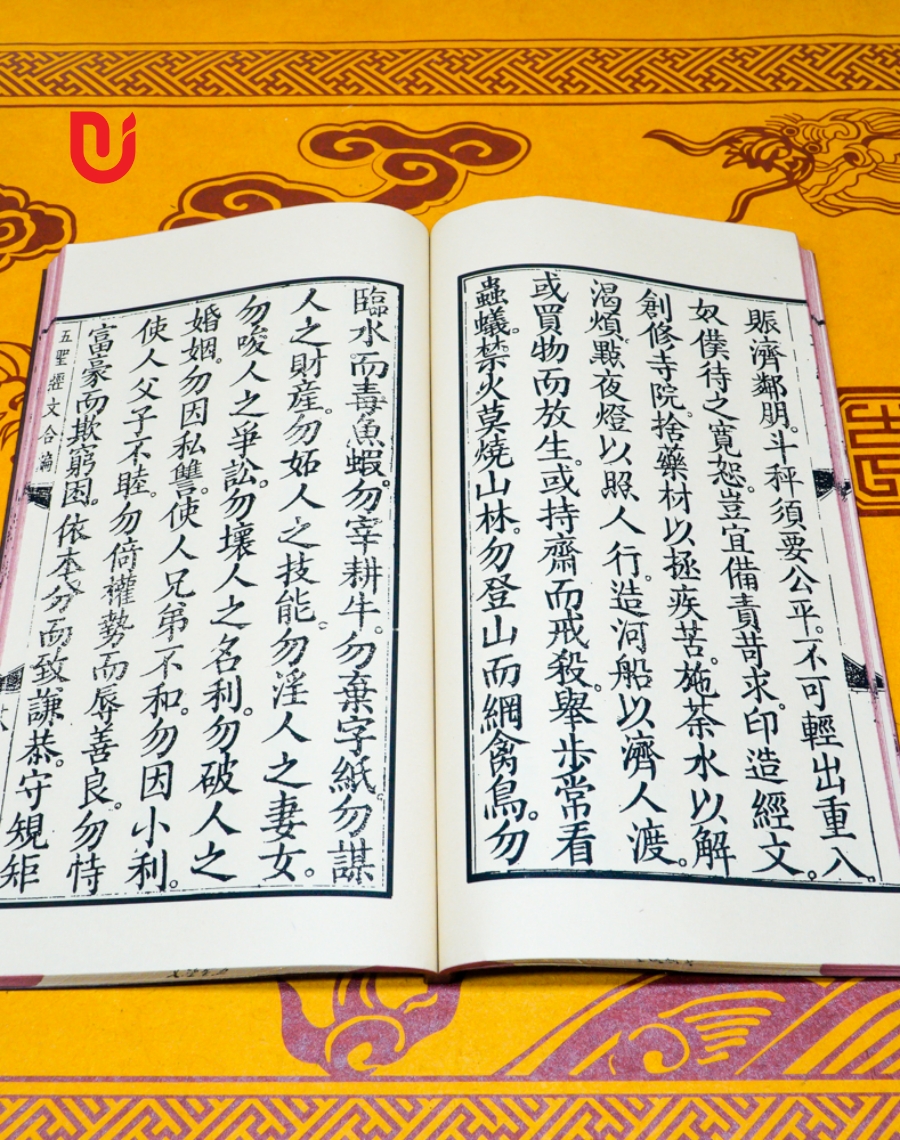 賑濟鄰朋。斗秤須要公平。不可輕出重入。
奴僕待之寬恕。豈宜備責苛求。印造經文。
創修寺院。捨藥材以拯疾苦。施茶水以解
渴煩。點夜燈以照人行。造河船以濟人渡。
或買物而放生。或持齋而戒殺。舉步常看
蟲蟻。禁火莫燒山林。勿登山而網禽鳥。勿
臨水而毒魚蝦。勿宰耕牛。勿棄字紙。勿謀
人之財產。勿妬人之技能。勿淫人之妻女。
勿唆人之爭訟。勿壞人之名利。勿破人之
婚姻。勿因私讐。使人兄弟不和。勿因小利。
使人父子不睦。勿倚權勢而辱善良。勿恃
富豪而欺窮困。依本分而致謙恭。守規矩
五聖經文合